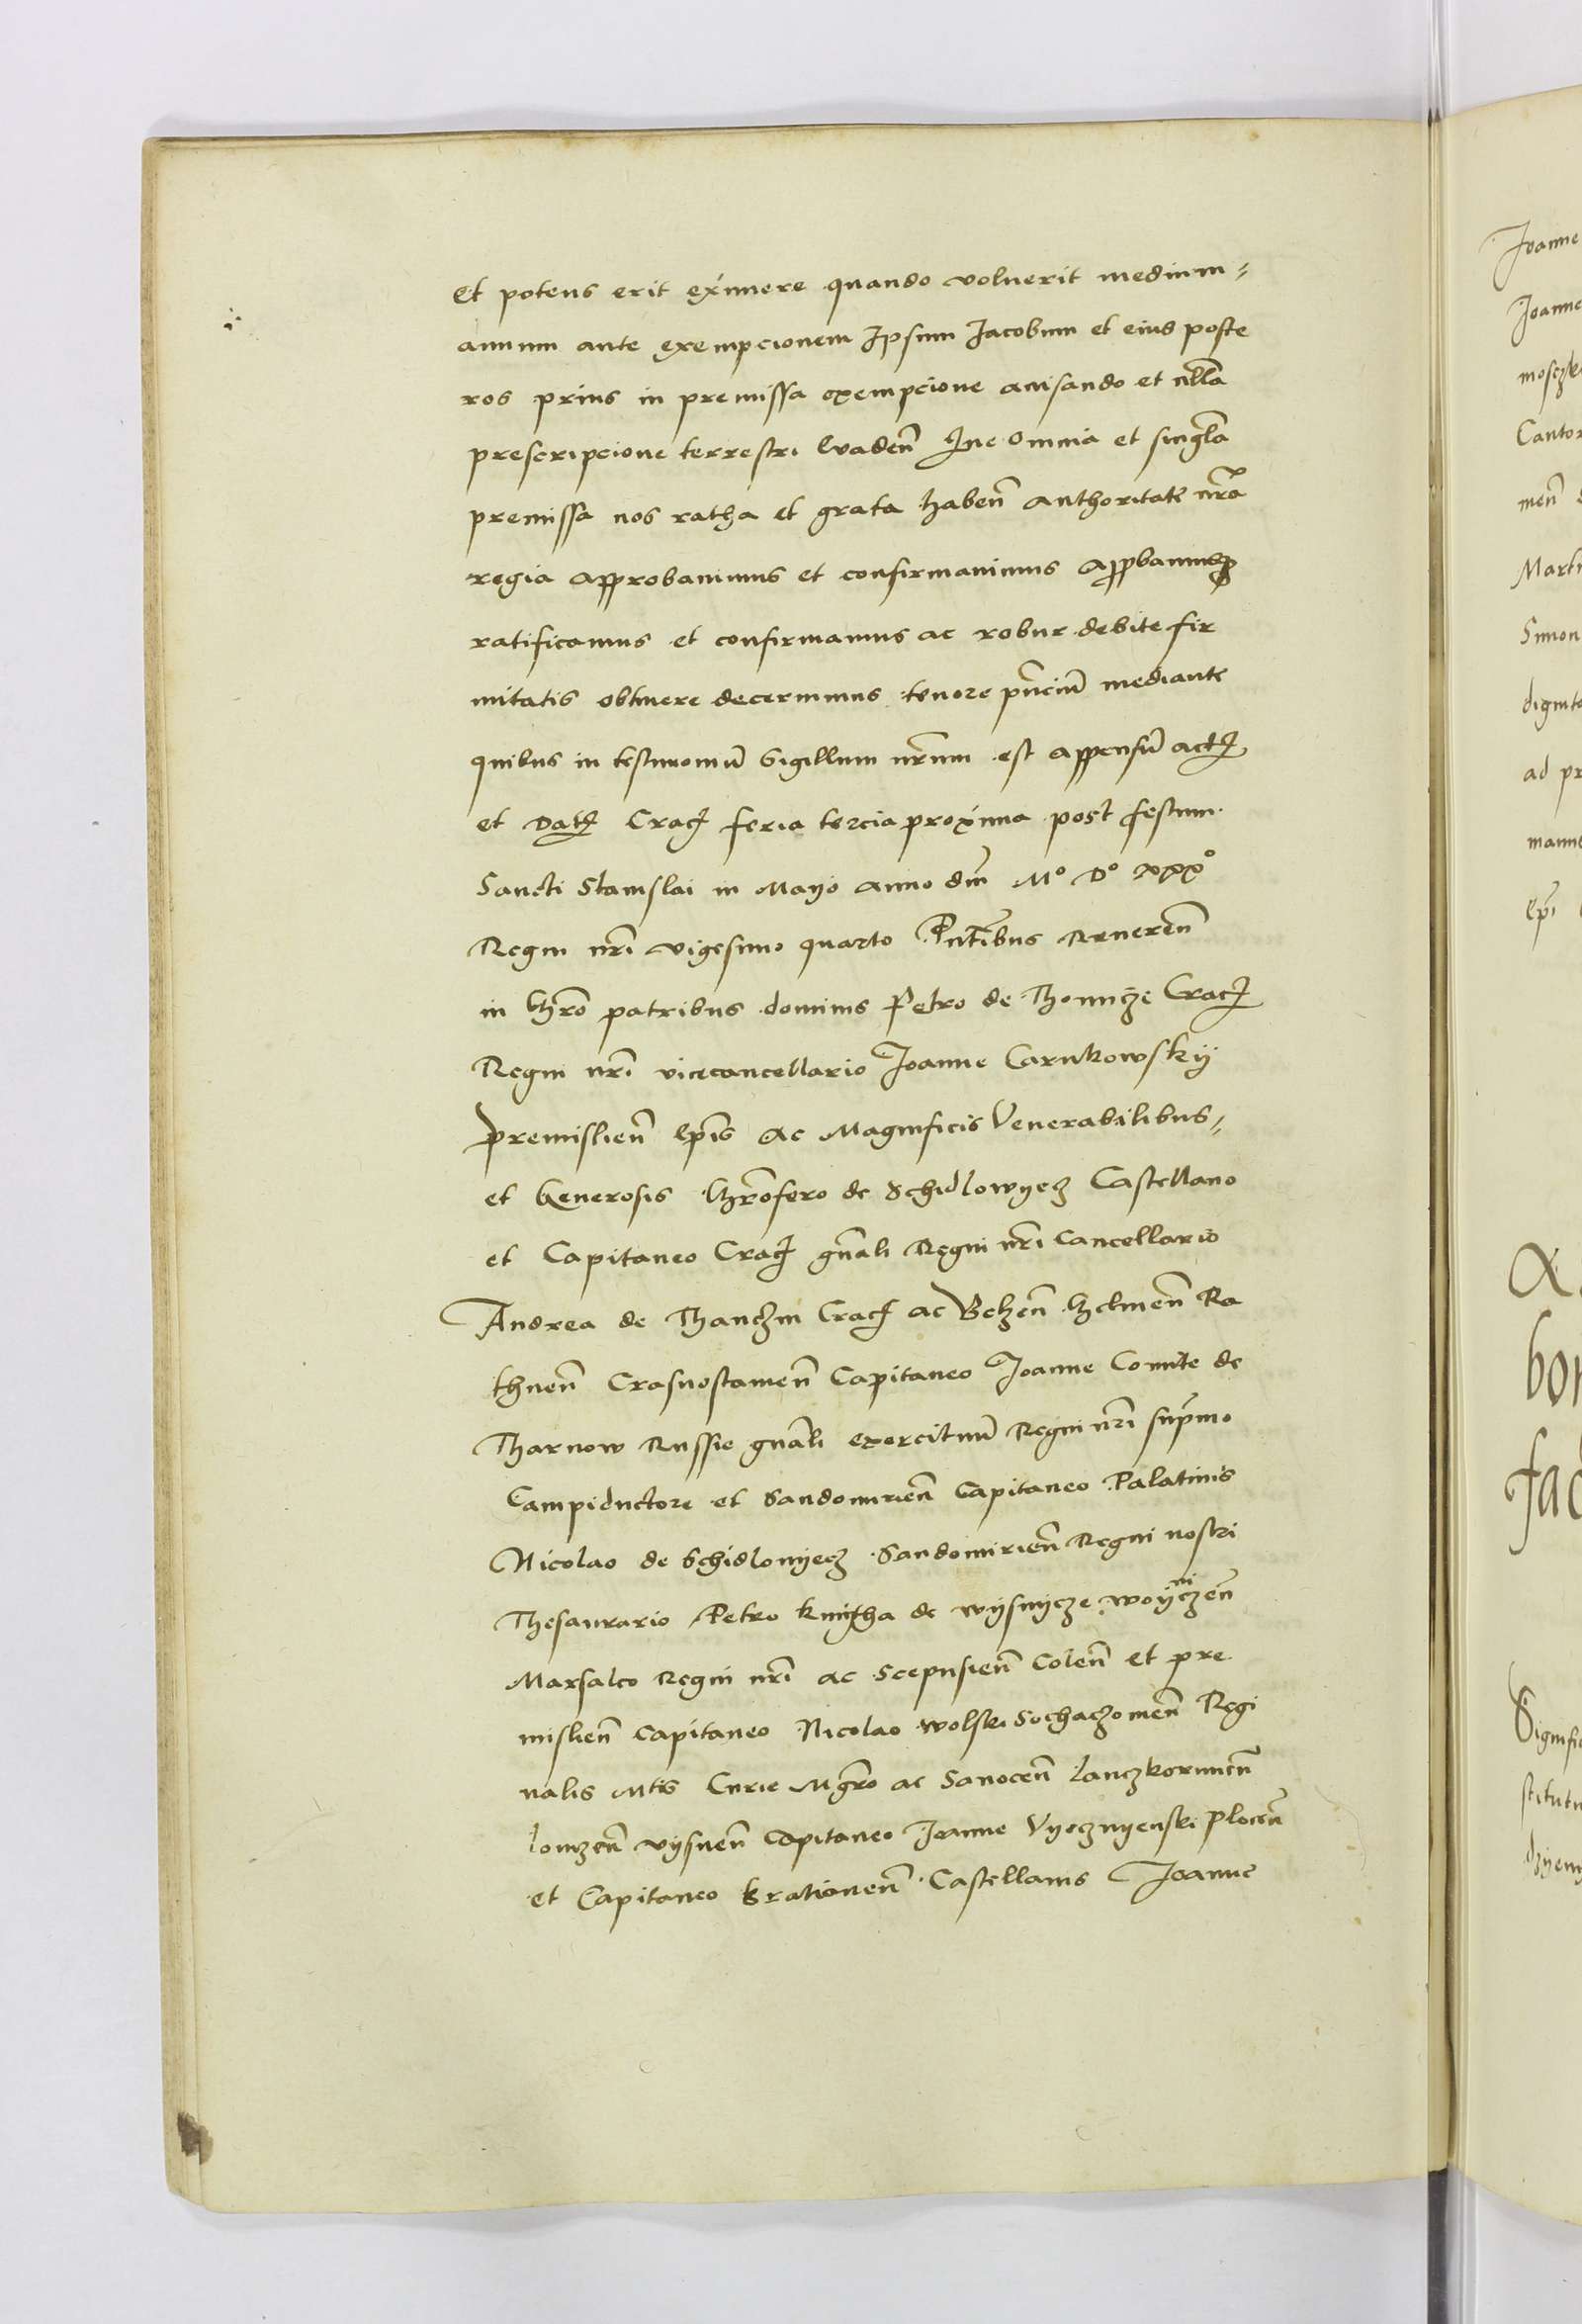 Et potens erit eximere quando voluerit medium-
annum ante exempcionem Ipsum Jacobum et eius poste
ros prius in premissa exempcione avisando et nlla
prescripcione terrestri Evadeñ Que omnia et singla
premissa nos ratha et grata habeñ Authoritate nra
regia approbavimus et confirmavimus appbamusq
ratificamus et confirmamus ac robur debite fir
mitatis obtinere decernimus tenore pnciũ mediante
quibus in testimoniũ Sigillum nrum est appensũ act
et Dat Crac feria tercia proxima post festum
Sancti Stanislai in Mayo anno dm̃ Mº Dº xxxº
Regni nri vigesimo quarto Pntibus Revereñ
in Chro patribus dominis Petro de Thomicze Crac
Regni nri vicecancellario Joanne Carnkowskÿ
premislieñ Epis ac Magnificis Venerabilibus-
et Generosis Chrofero de Schidlowyecz Castellano
et Capitaneo Crac gnali Regni nri Cancellario
Andrea de Thanczin Crac ac Belzeñ Chelmeñ Ra
thneñ Crasnostaweñ Capitaneo Joanne Comite de
Tharnow Russie gnali exercituũ Regni nri supmo
Campiductore et Sandomirieñ Capitaneo Palatinis
Nicolao de Schidlowyecz Sandomirieñ Regni nostri
Thesaurario Petro Kmitha de wysnycze woyniczeñ
Marsalco Regni nri ac Scepusieñ Coleñ et pre
mislieñ Capitaneo Nicolao wolski Sochaczowieñ Regi
nalis Mtis Curie Mgro ac Sanoceñ Lanczkoruneñ
lomzeñ vysneñ Capitaneo Joanne Vyeczvyenski Ploceñ
et Capitaneo Krationeñ Castellanis Joanne
Joanne
Joanne
Cantor
meñ
Mart
Simon
dignit
ad pr
Epi
bo
fac
Signifi
stitut